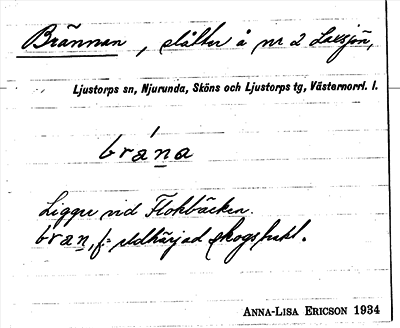 Brännan, slåtter å nr 2 Laxsjön,
Ljustorps sn, Njurunda, Sköns och Ljustorps tg, Västernorrl. l.
bráṉa
Ligger vid Flokbäcken.
braṉ, f. = eldhärjad skogstrakt.
ANNA-LISA ERICSON 1934